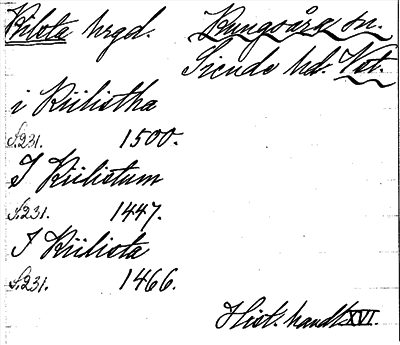 Kilsta hrgd. Kungsåra sn.
Siende hd. Vst.
i Kiilistha
S. 231. 1500.
I Kiilistum
S. 231. 1447.
I Kiilista
S. 231. 1466.
Hist. handl. XVI.